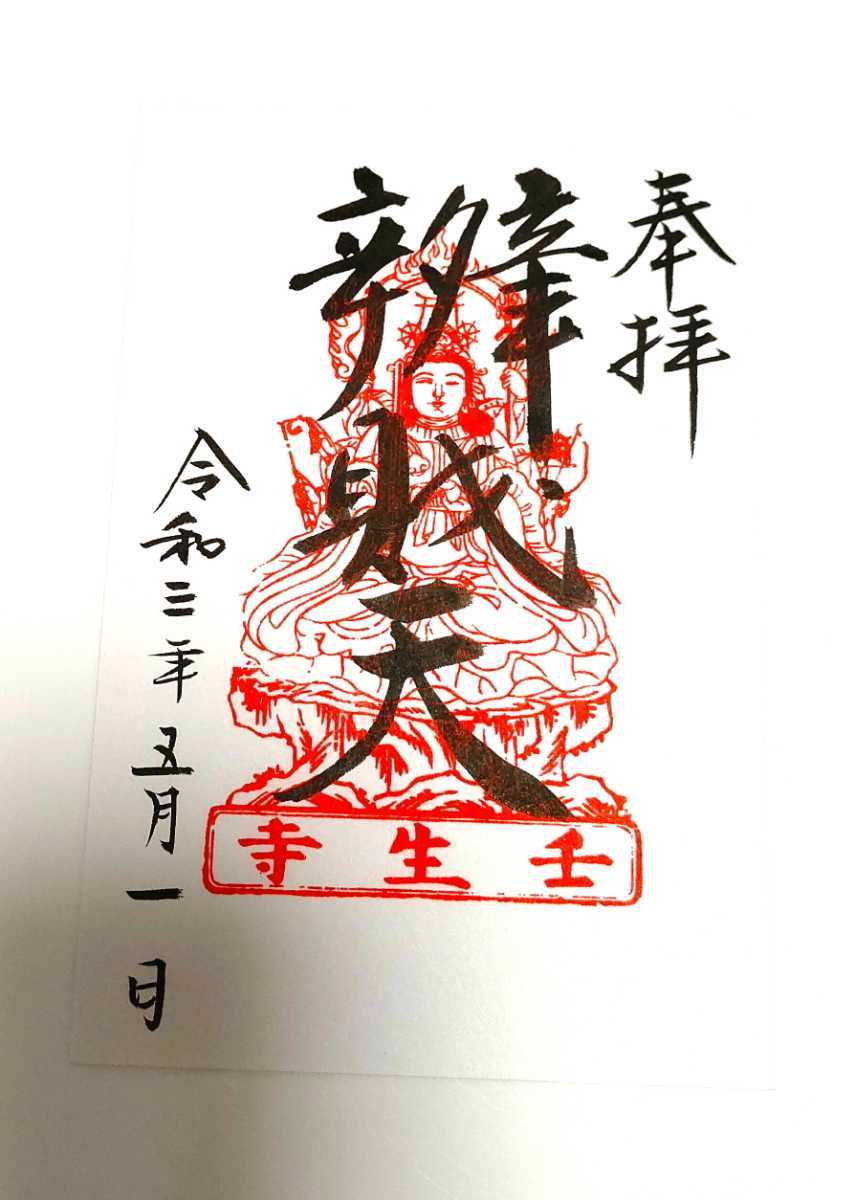 奉拝
辨財天
令和三年五月一日
壬生寺